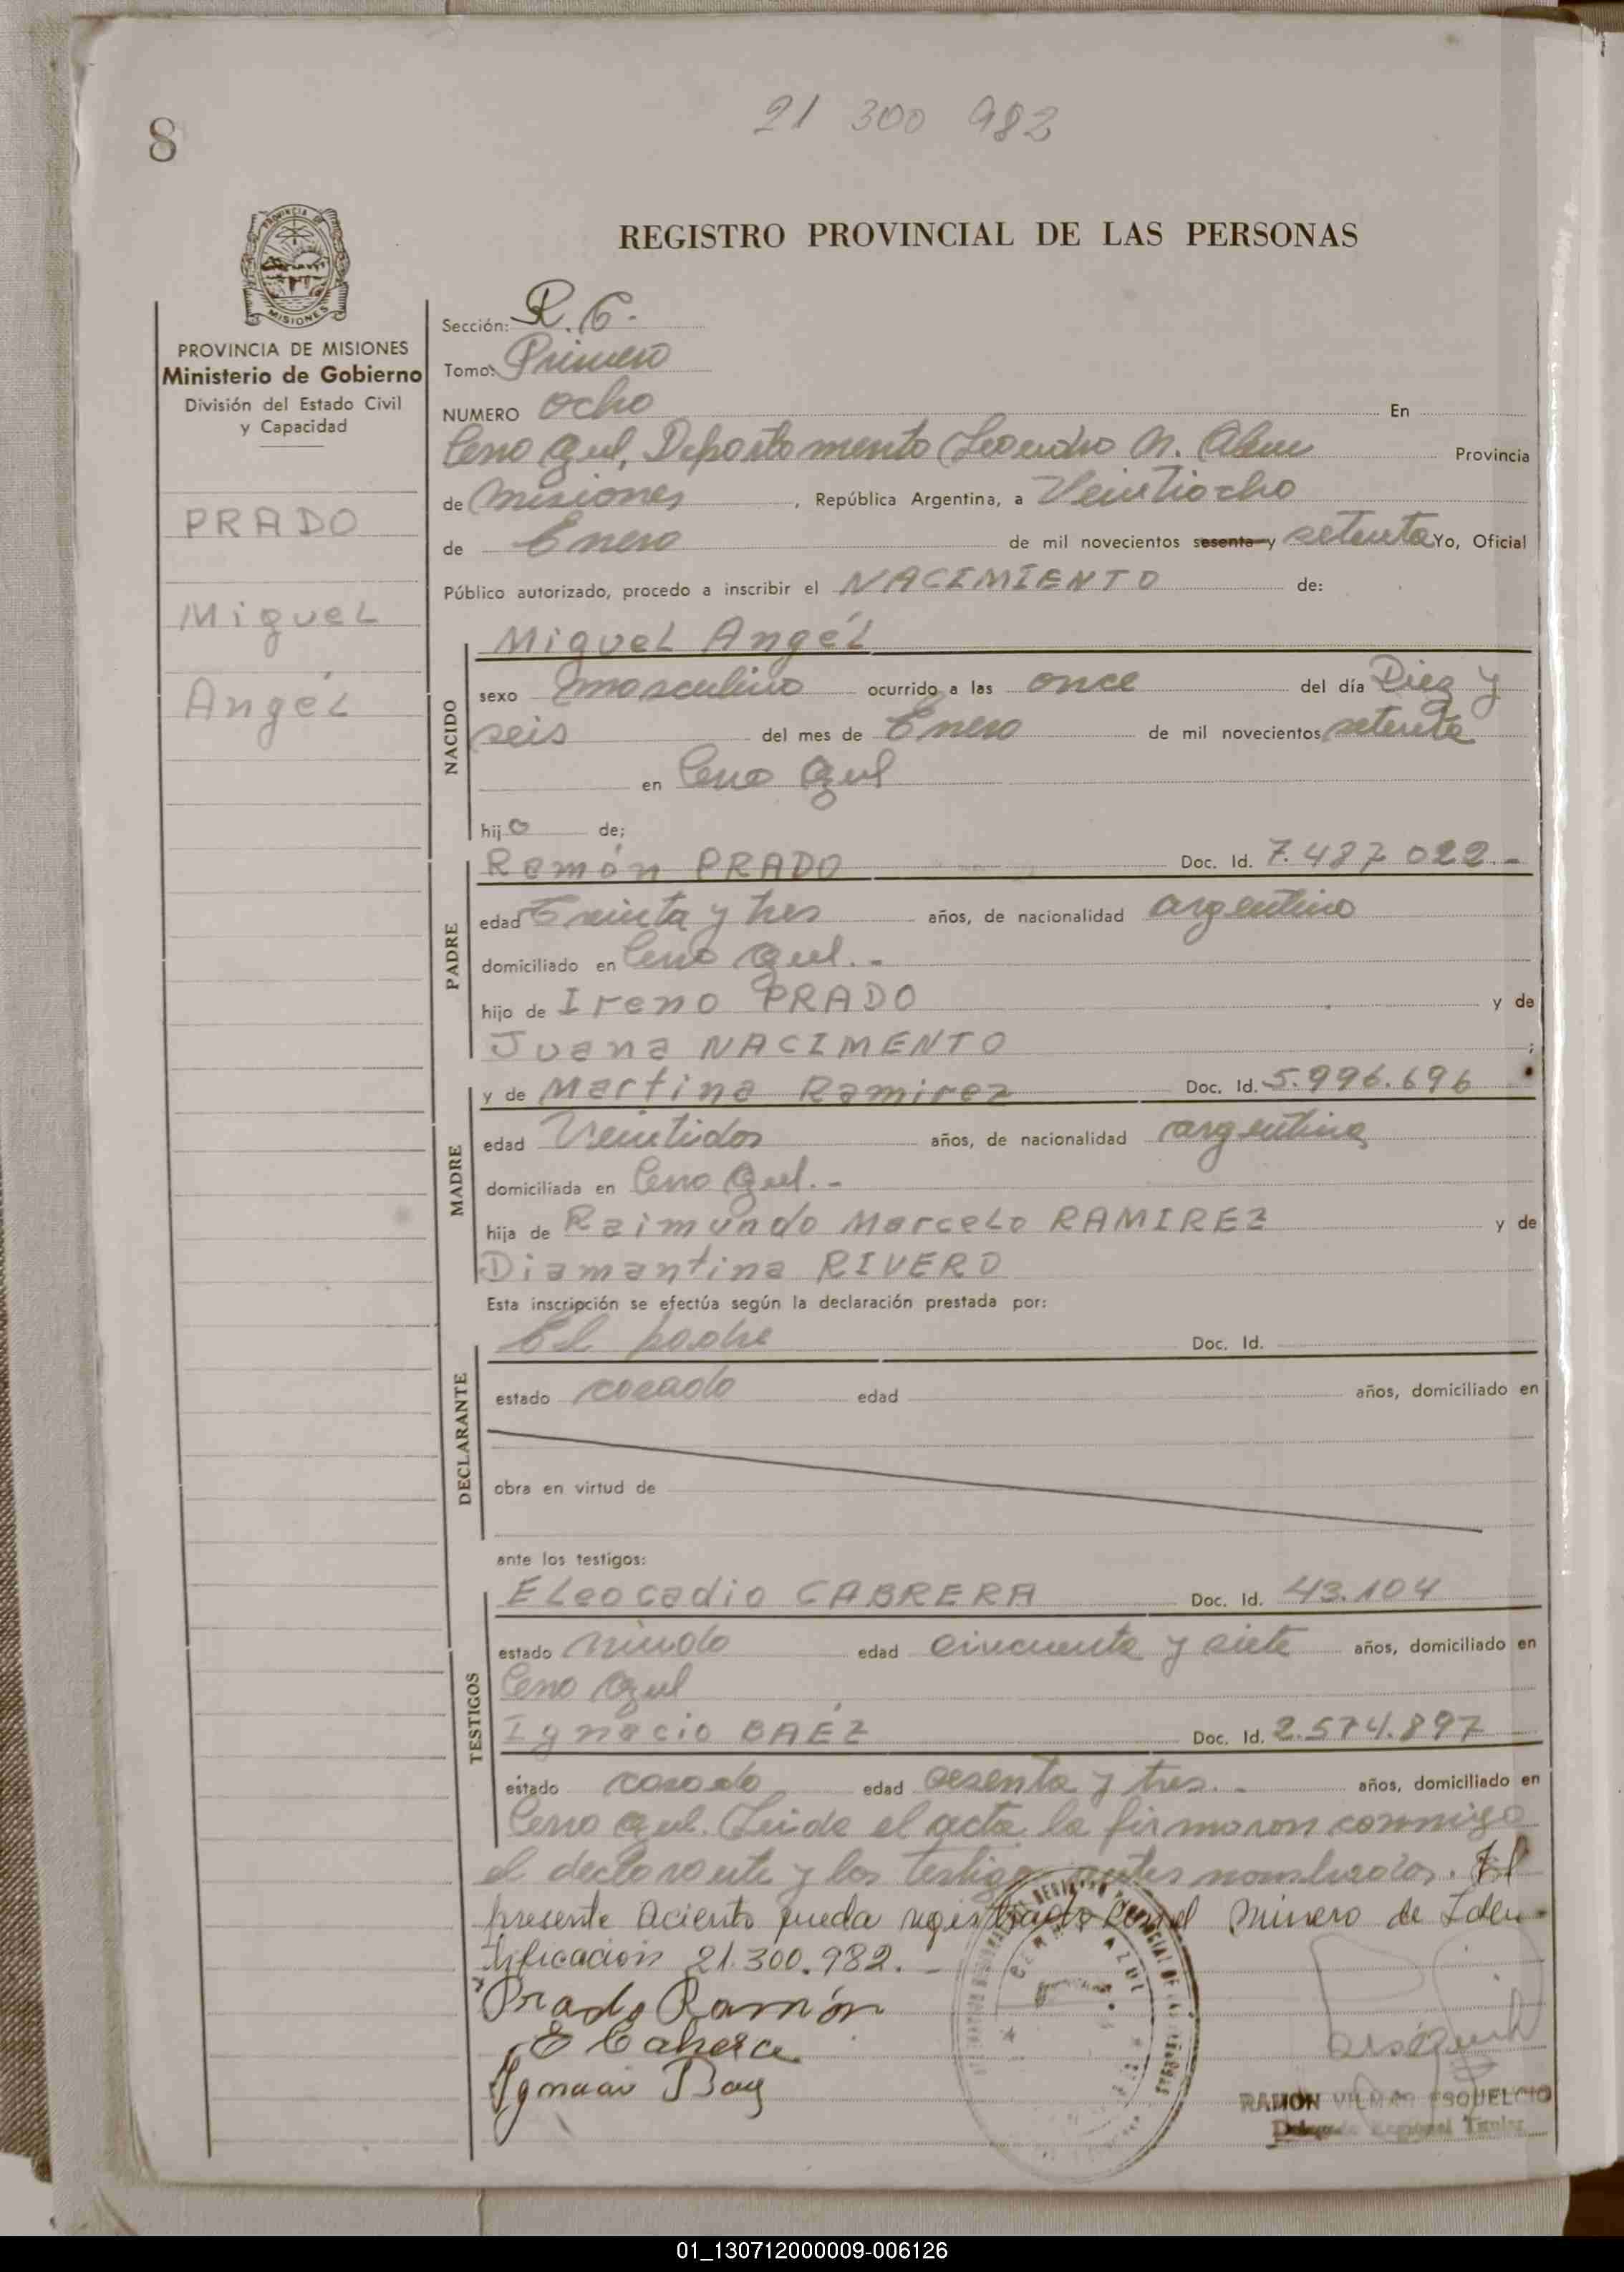 21 300 982
8
REGISTRO PROVINCIAL DE LAS PERSONAS
PROVINCIA DE MISIONES
Ministerio de Gobierno
División del Estado Civil
y Capacidad
PRADO
Miguel
Angél
Sección: R. C.
Tomo: Primero
NUMERO Ocho En
Cerro Azul, Departamento Leandro N. Alem Provincia
de Misiones, República Argentina, a Veintiocho
de Enero de mil novecientos sesenta y setenta Yo, Oficial
Público autorizado, procedo a inscribir el NACIMIENTO de:
NACIDO
Miguel Angél
sexo masculino ocurrido a las once del día Diez y
seis del mes de Enero de mil novecientos setenta
en Cerro Azul
hijo de;
PADRE
Ramón PRADO Doc. Id. 7.487.022.-
edad Treinta y tres años, de nacionalidad argentino
domiciliado en Cerro Azul.-
hijo de Ireno PRADO y de
Juana NACIMENTO ;
MADRE
y de Martina Ramirez Doc. Id. 5.996.696
edad Veintidos años, de nacionalidad argentina
domiciliada en Cerro Azul.-
hija de Raimundo Marcelo RAMIREZ y de
Diamantina RIVERO
Esta inscripción se efectúa según la declaración prestada por:
DECLARANTE
El padre Doc. Id.
estado casado edad años, domiciliado en
obra en virtud de
ante los testigos:
TESTIGOS
Eleocadio CABRERA Doc. Id. 43.104
estado viudo edad cincuenta y siete años, domiciliado en
Cerro Azul
Ignacio BAÉZ Doc. Id. 2.574.897
estado casado edad sesenta y tres.- años, domiciliado en
Cerro Azul. Leida el acta la firmaron conmigo
el declarante y los testigos antes nombrados. El
presente Aciento queda registrado con el Número de Iden-
tificación 21.300.982.-
Prado Ramón
E Cabrera
Ignacio Baez
CERRO AZUL
RAMON VILMAR ESQUELCIO
Delegado Regional Titular
01_130712000009-006126